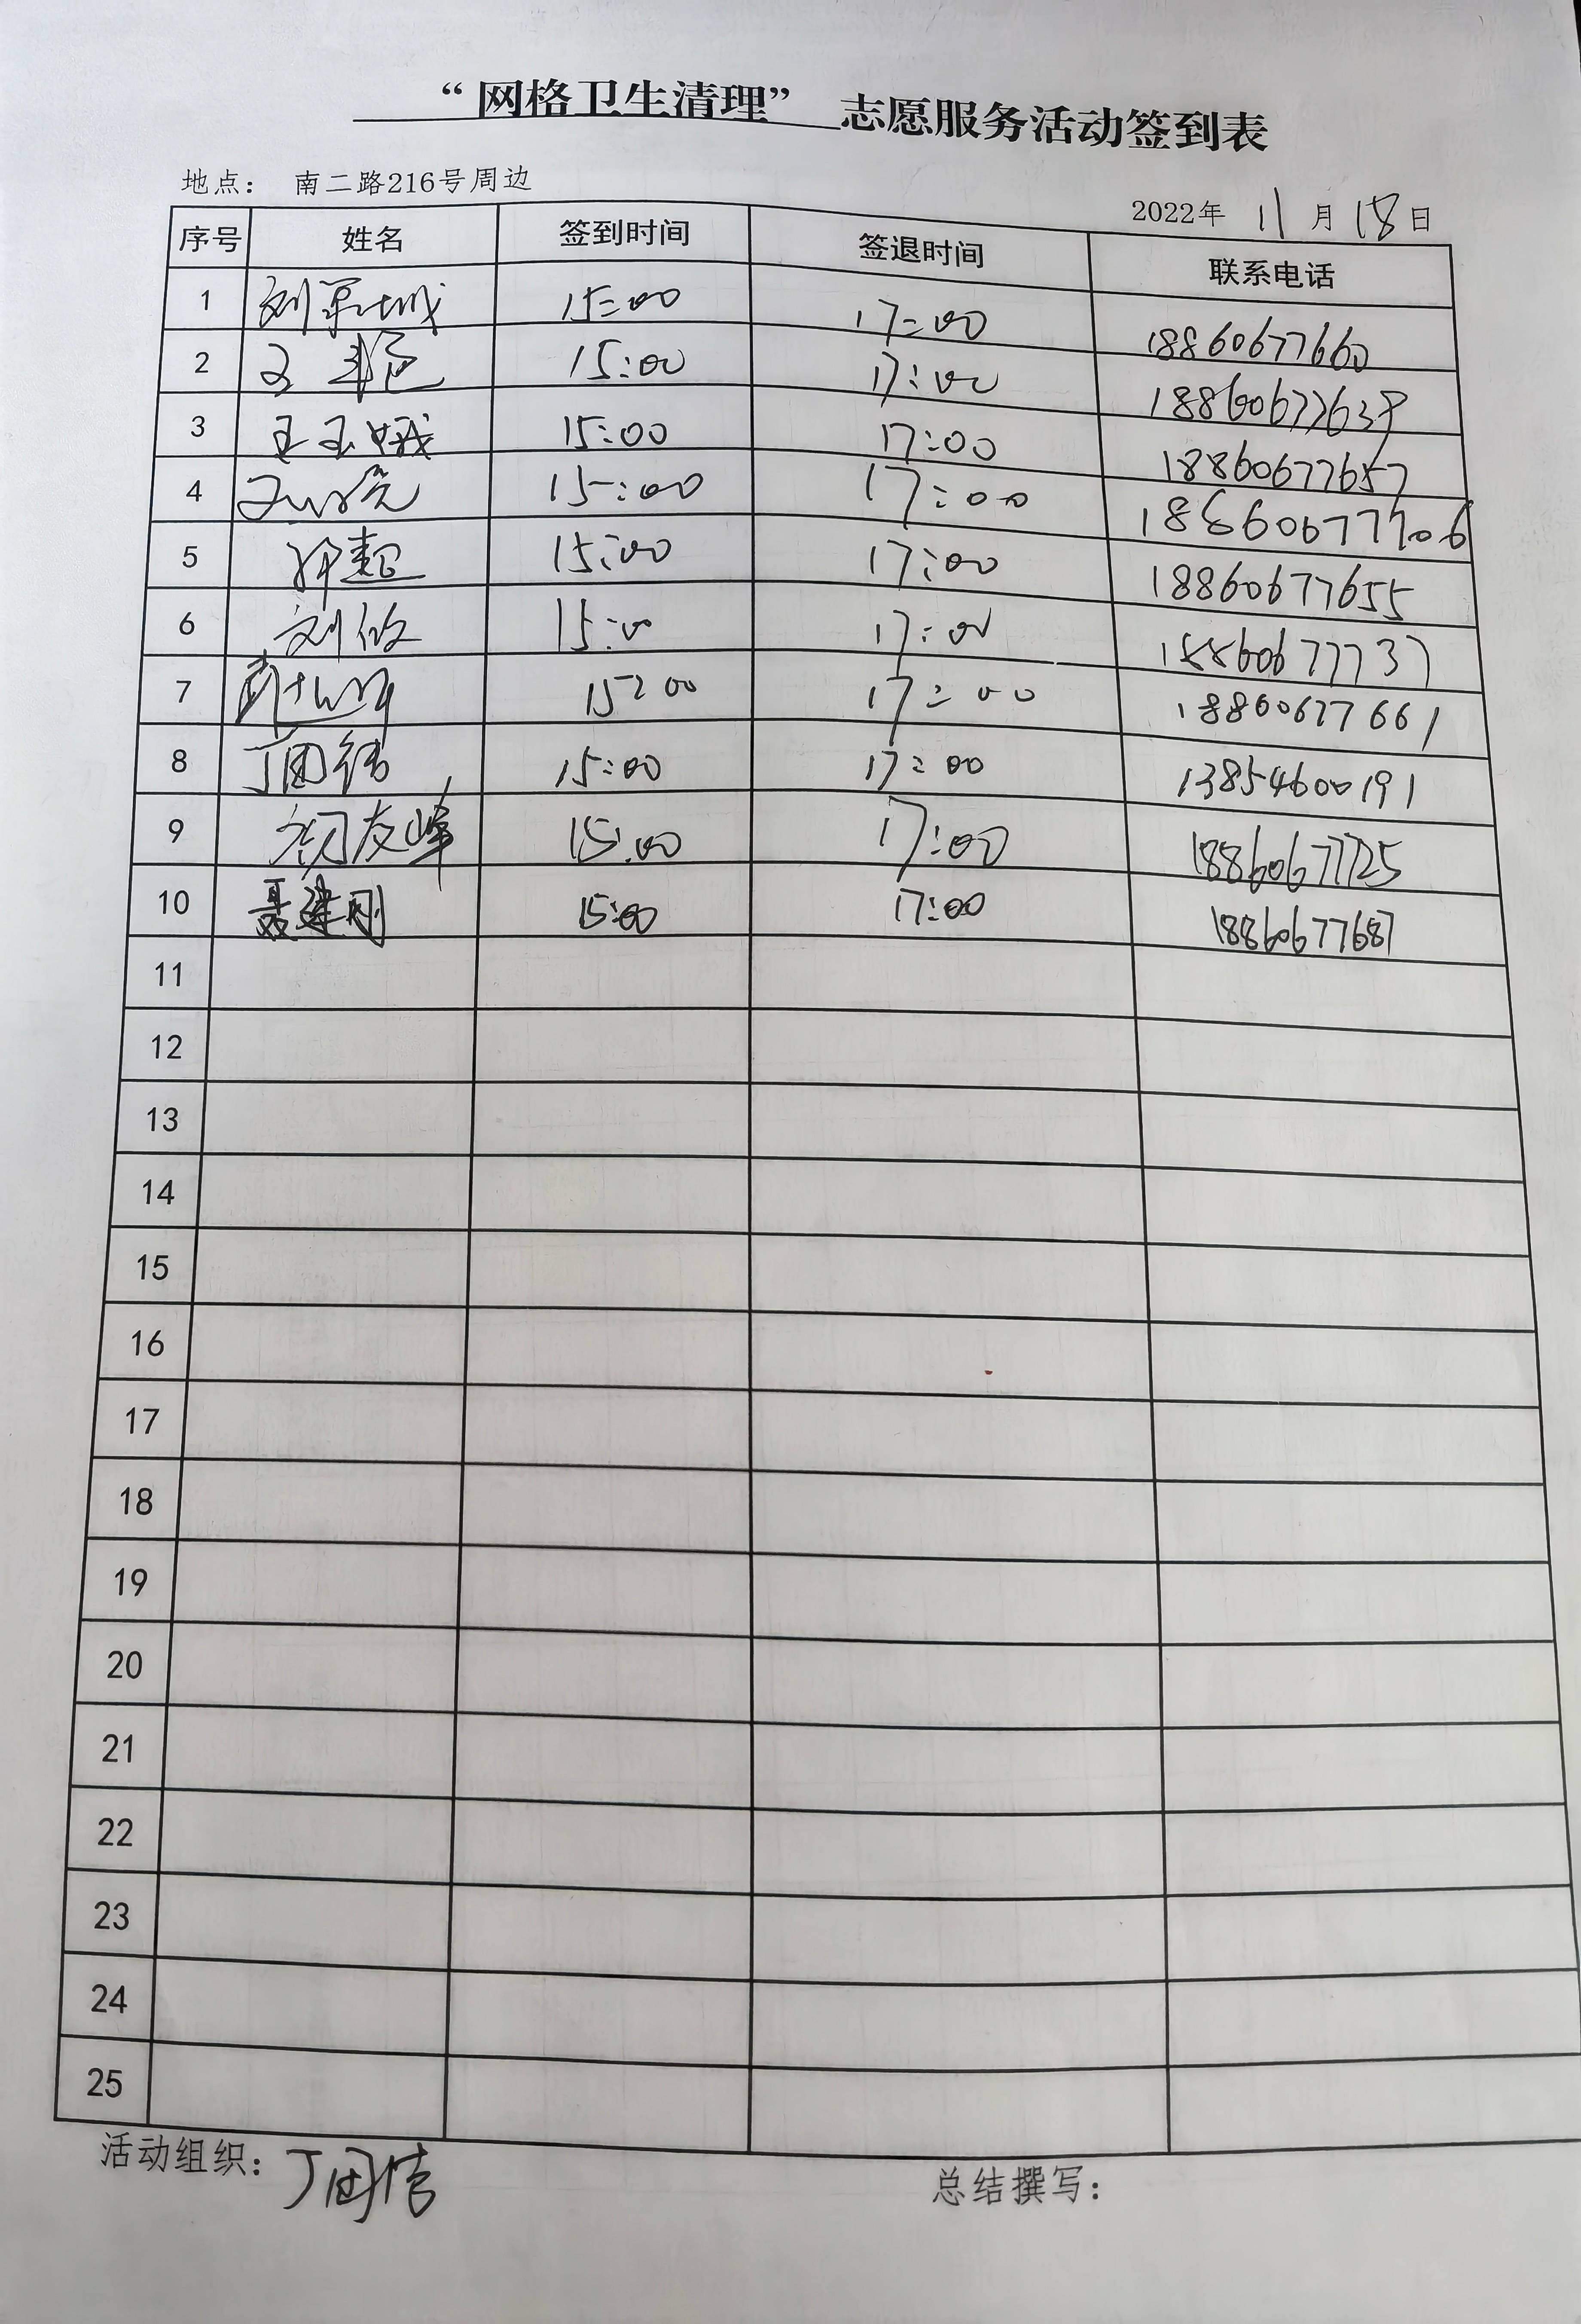 “网格卫生清理” 志愿服务活动签到表
地点： 南二路216号周边
2022年 11 月 18 日
序号 姓名 签到时间 签退时间 联系电话
1 15:00 17:00 18860677660
2 15:00 17:00 18860677639
3 王玉娥 15:00 17:00 18860677657
4 15:00 17:00 18860677706
5 15:00 17:00 18860677655
6 刘欣 15:00 17:00 18860677737
7 15:00 17:00 18860677661
8 丁国 15:00 17:00 13854600191
9 友峰 15:00 17:00 18860677725
10 聂建刚 15:00 17:00 18860677687
11
12
13
14
15
16
17
18
19
20
21
22
23
24
25
活动组织： 丁国
总结撰写：